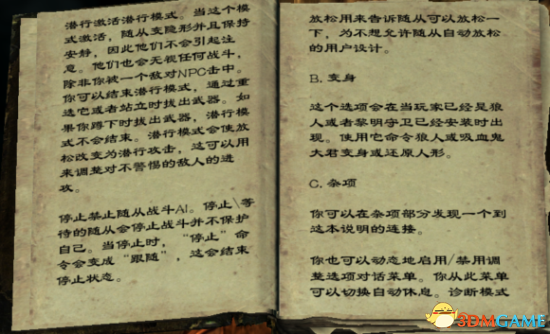 潜行激活潜行模式。当这个模
式激活，随从变隐形并且保持
安静，因此他们不会引起注
意。他们也会无视任何战斗，
除非你被一个敌对NPC击中。
你可以结束潜行模式，通过重
选它或者站立时拔出武器。如
果你蹲下时拔出武器，潜行模
式不会结束。潜行模式会使放
松改变为潜行攻击，这可以用
来调整对不警惕的敌人的进
攻。
停止禁止随从战斗AI。停止\等
待的随从会停止战斗并不保护
自己。当停止时，“停止”命
令会变成“跟随”，这会结束
停止状态。
放松用来告诉随从可以放松一
下，为不想允许随从自动放松
的用户设计。
B. 变身
这个选项会在当玩家已经是狼
人或者黎明守卫已经安装时出
现。使用它命令狼人或吸血鬼
大君变身或还原人形。
C. 杂项
你可以在杂项部分发现一个到
这本说明的连接。
你也可以动态地启用/禁用调
整选项对话菜单。你从此菜单
可以切换自动休息，诊断模式
3DMGAME